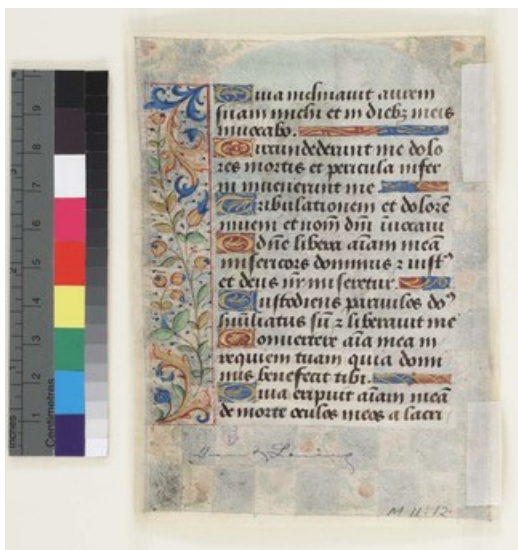 Quia inclinavit aurem
suam michi et in dieb; meis
invocabo.
Circundederunt me dolo
res mortis et pericula infer
ni invenerunt me
Tribulationem et dolorē
inveni et nom̄ dn̄i īvocavi
O dn̄e libera aīam meā
misericors dominus ꝛ iust⁹
et deus nr̄ miseretur.
Custodiens parvulos do⁹
humiliatus sū ꝛ liberavit me
Convertere aīa mea in
requiem tuam quia domi
nus benefecit tibi.
Quia eripuit aīam meā
de morte oculos meos a lacri
M 11:12
Inches
Centimetres